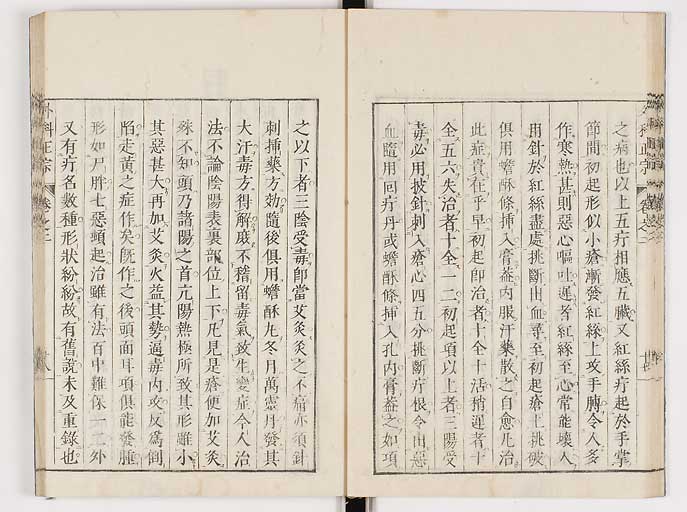 之病也以上五疔相應五臟又紅絲疔起於手掌
節間初起形似小瘡漸發紅絲上攻手膊令人多
作寒熱甚則惡心嘔吐遲者紅絲至心常能壞人
用針於紅絲盡處挑斷出血尋至初起瘡上挑破
俱用蟾酥條挿入膏蓋内服汗藥散之自愈凡治
此症貴在乎早初起即治者十全十活稍遲者十
全五六失治者十全一二初起項以上者三陽受
毒必用披針刺入瘡心四五分挑斷疔根令出惡
血隨用回疔丹或蟾酥條挿入孔内膏蓋之如項
之以下者三陰受毒即當艾灸灸之不痛亦須針
刺挿藥方効隨後俱用蟾酥丸冬月萬靈丹發其
大汗毒方得解庶不稽留毒氣致生變症今人治
法不論陰陽表裏部位上下凡見是瘡便加艾灸
殊不知頭乃諸陽之首亢陽熱極所致其形雖小
其惡甚大再加艾灸火益其勢逼毒内攻反爲倒
陷走黄之症作矣既作之後頭面耳項俱能發腫
形如尸胖七惡頓起治雖有法百中難保一二外
又有疔名數種形狀紛紛故有舊說未及重錄也
外科正宗
卷之二